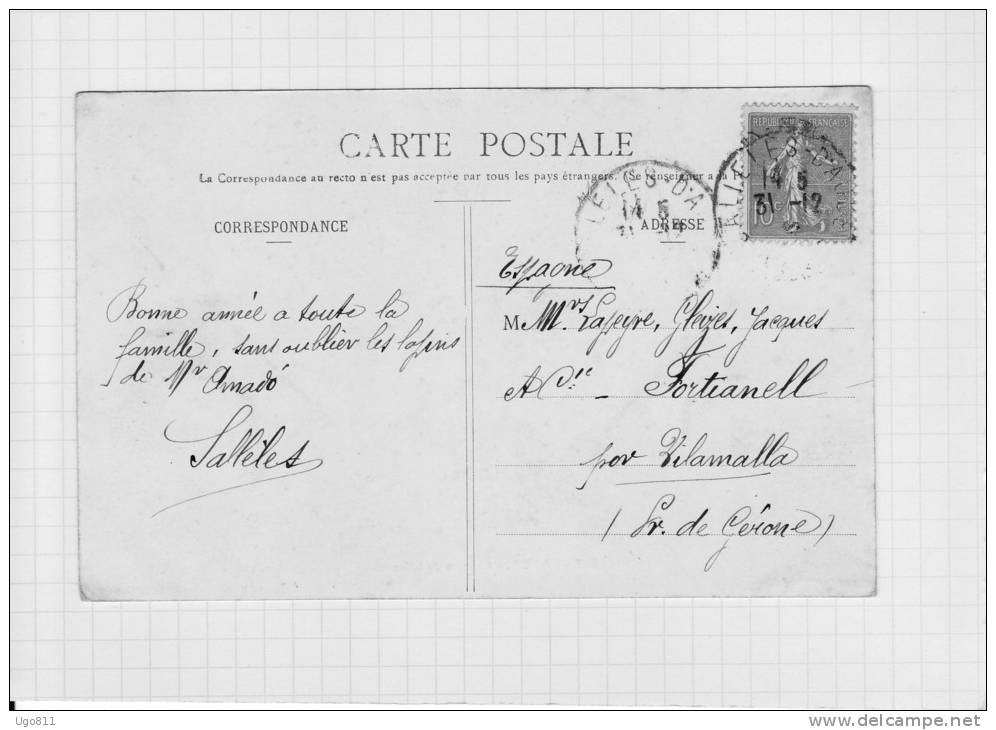 CARTE POSTALE
La Correspondance au recto n'est pas acceptée par tous les pays étrangers. (Se renseigner à la P
CORRESPONDANCE
ADRESSE
REPUBLIQUE FRANÇAISE
10c
LELES-D'A
14 5
31 -12
SALLELES-D'AUDE
14 5
31 -12
Espagne
Bonne année a toute la
famille, sans oublier les lapins
de Mr Amadó
Sallèles
M Mrs. Lapeyre, Gleizes, Jacques
& Cie - Fortianell
por Vilamalla
(Pr. de Gérone)
Ugo811
www.delcampe.net